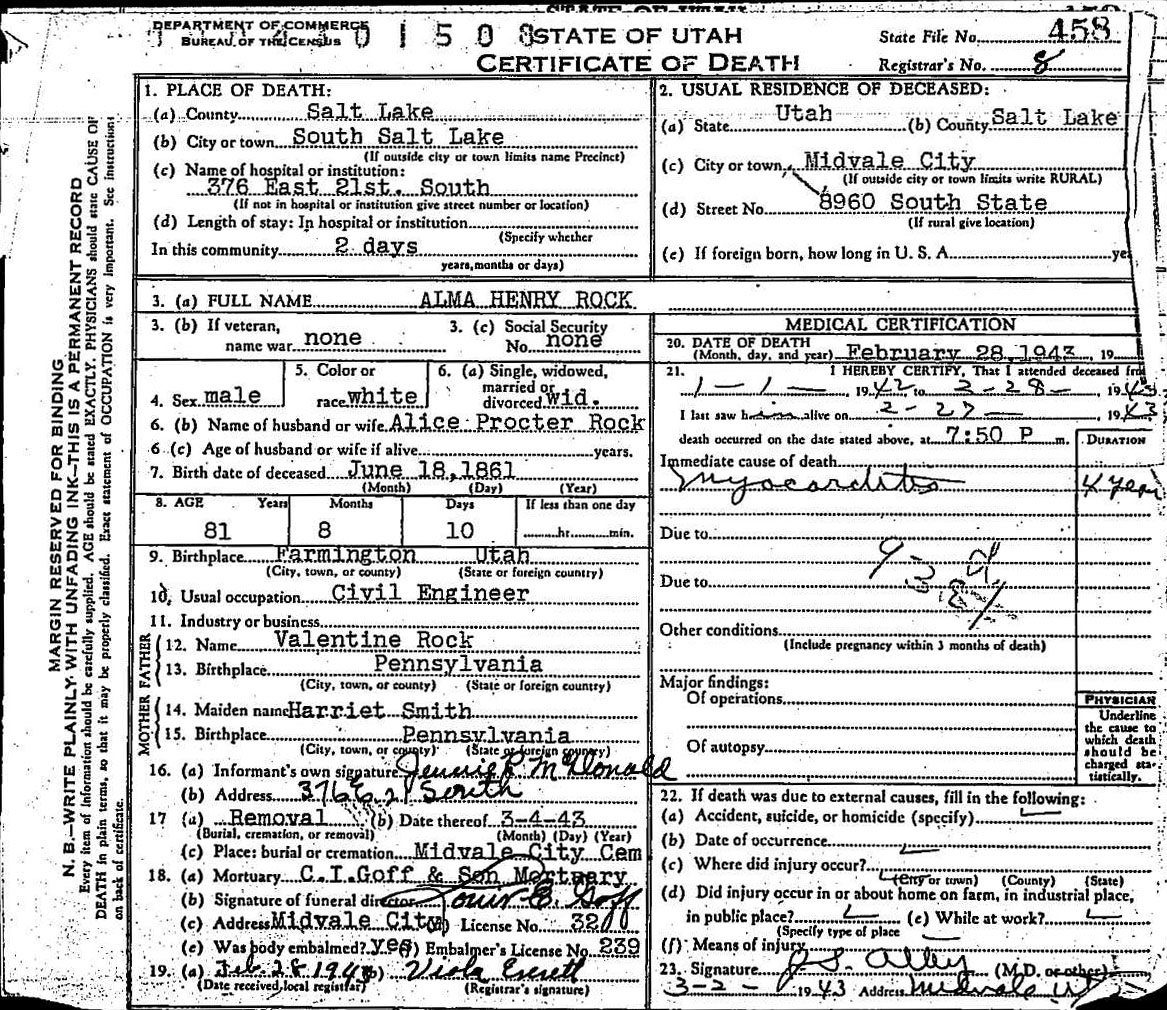 DEPARTMENT OF COMMERCE
BUREAU OF THE CENSUS
STATE OF UTAH
CERTIFICATE OF DEATH
State File No. 458
Registrar's No. 8
MARGIN RESERVED FOR BINDING
N. B.—WRITE PLAINLY WITH UNFADING INK—THIS IS A PERMANENT RECORD
Every item of information should be carefully supplied. AGE should be stated EXACTLY. PHYSICIANS should state CAUSE OF
DEATH in plain terms, so that it may be properly classified. Exact statement of OCCUPATION is very important. See instructions
on back of certificate.
1. PLACE OF DEATH:
(a) County Salt Lake
(b) City or town South Salt Lake
(If outside city or town limits name Precinct)
(c) Name of hospital or institution:
376 East 21st. South
(If not in hospital or institution give street number or location)
(d) Length of stay: In hospital or institution
(Specify whether
In this community 2 days
years, months or days)
2. USUAL RESIDENCE OF DECEASED:
(a) State Utah (b) County Salt Lake
(c) City or town Midvale City
(If outside city or town limits write RURAL)
(d) Street No. 8960 South State
(If rural give location)
(e) If foreign born, how long in U. S. A.
3. (a) FULL NAME ALMA HENRY ROCK
3. (b) If veteran, name war none
3. (c) Social Security No. none
4. Sex male
5. Color or race white
6. (a) Single, widowed, married or divorced Wid.
6. (b) Name of husband or wife Alice Procter Rock
6 (c) Age of husband or wife if alive years.
7. Birth date of deceased June 18, 1861
(Month) (Day) (Year)
8. AGE Years Months Days If less than one day
81 8 10 hr. min.
9. Birthplace Farmington Utah
(City, town, or county) (State or foreign country)
10. Usual occupation Civil Engineer
11. Industry or business
FATHER
12. Name Valentine Rock
13. Birthplace Pennsylvania
(City, town, or county) (State or foreign country)
MOTHER
14. Maiden name Harriet Smith
15. Birthplace Pennsylvania
(City, town, or county) (State or foreign country)
16. (a) Informant's own signature Jennie R McDonald
(b) Address 376 E 21 South
17 (a) Removal (b) Date thereof 3-4-43
(Burial, cremation, or removal) (Month) (Day) (Year)
(c) Place: burial or cremation Midvale City Cem
18. (a) Mortuary C.I.Goff & Son Mortuary
(b) Signature of funeral director Louis E. Goff
(c) Address Midvale City License No. 320
(e) Was body embalmed? yes Embalmer's License No. 239
19. (a) Feb. 28 1943 (b) Viola
(Date received local registrar) (Registrar's signature)
MEDICAL CERTIFICATION
20. DATE OF DEATH
(Month, day, and year) February 28, 1943, 19
21. I HEREBY CERTIFY, That I attended deceased from
1-1- 1942, to 2-28- 1943
I last saw him alive on 2-27- 1943
death occurred on the date stated above, at 7:50 P m.
DURATION
Immediate cause of death
Myocarditis 4 year
Due to
Due to
Other conditions
(Include pregnancy within 3 months of death)
Major findings:
Of operations
Of autopsy
PHYSICIAN
Underline
the cause to
which death
should be
charged sta-
tistically.
22. If death was due to external causes, fill in the following:
(a) Accident, suicide, or homicide (specify)
(b) Date of occurrence
(c) Where did injury occur?
(City or town) (County) (State)
(d) Did injury occur in or about home on farm, in industrial place,
in public place? (e) While at work?
(Specify type of place
(f) Means of injury
23. Signature J.S. Alley (M.D. or other)
3-2- 1943 Address Midvale Ut